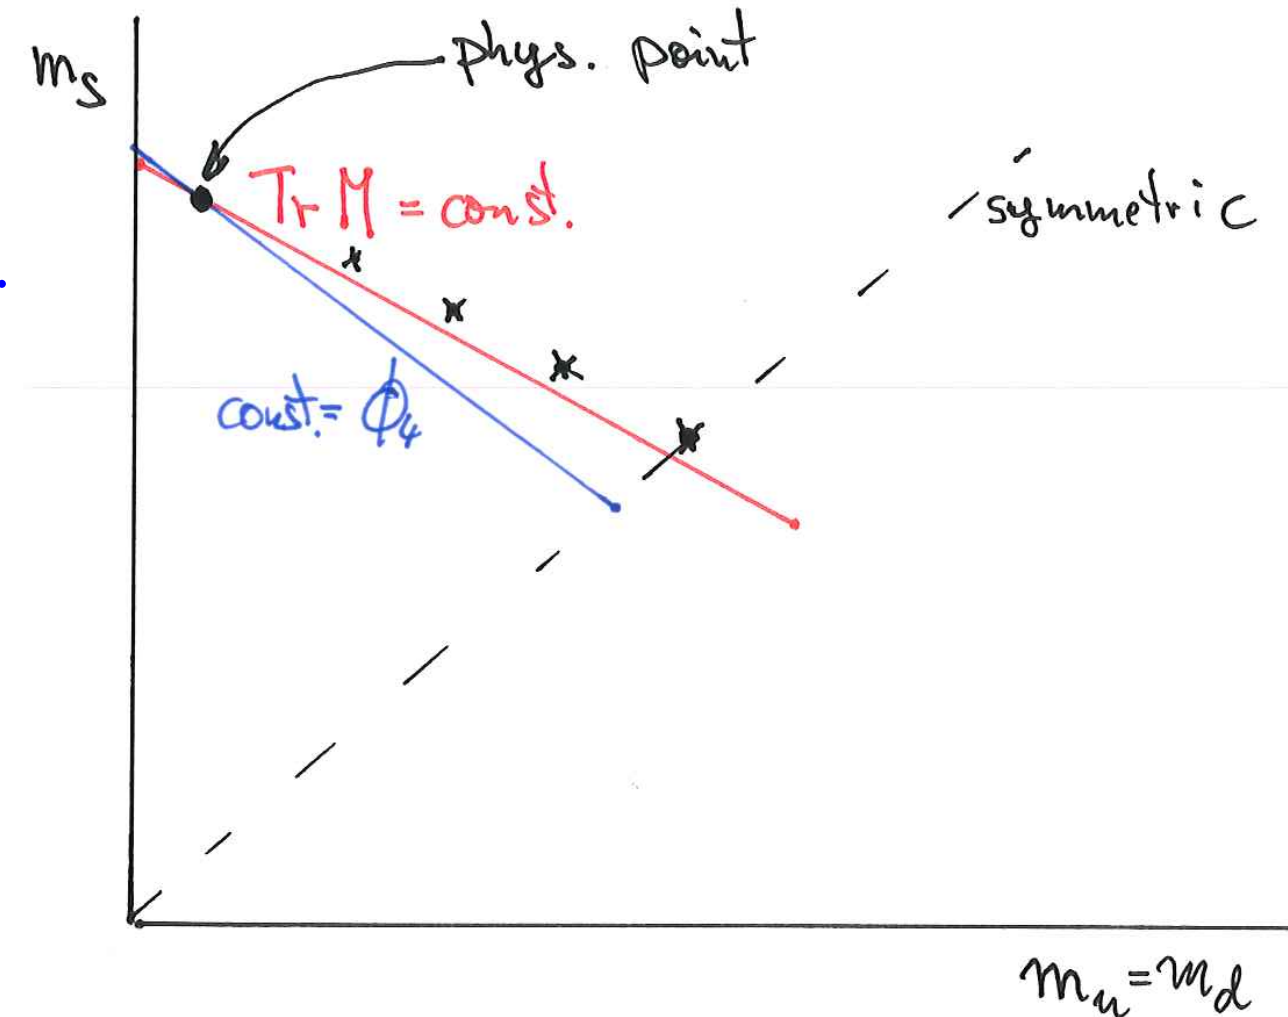 phys. point
m_s
Tr M = const.
symmetric
const. = ϕ₄
m_u = m_d